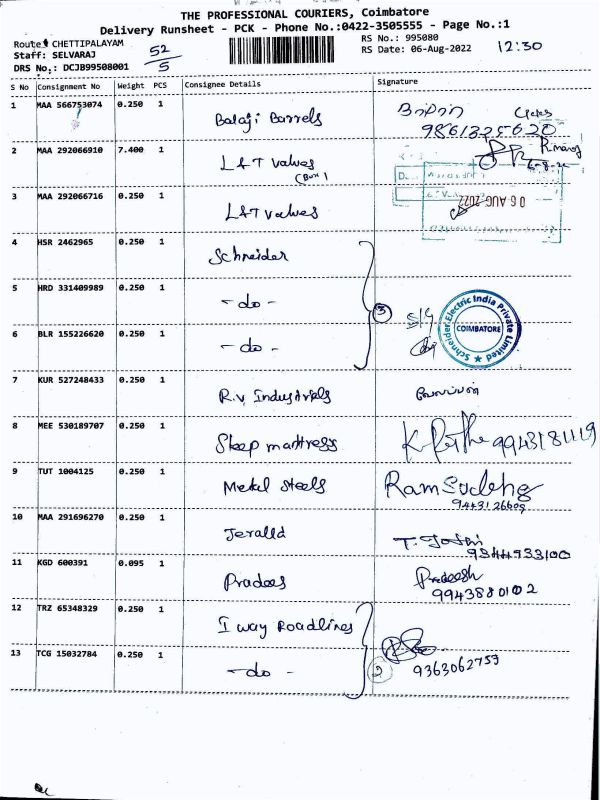 THE PROFESSIONAL COURIERS, Coimbatore
Delivery Runsheet - PCK - Phone No.:0422-3505555 - Page No.:1
Route: CHETTIPALAYAM
Staff: SELVARAJ
DRS No.: DCJB99508001
52/5
RS No.: 995080
RS Date: 06-Aug-2022
12:30
S No Consignment No Weight PCS Consignee Details Signature
1 MAA 566753074 0.250 1 Balaji Barrels
2 MAA 292066910 7.400 1 L&T Valves (Box)
3 MAA 292066716 0.250 1 L&T Valves
06 AUG 2022
4 HSR 2462965 0.250 1 Schneider
5 HRD 331409989 0.250 1 - do - 3
6 BLR 155226620 0.250 1 - do -
Schneider Electric India Private Limited
COIMBATORE
7 KUR 527248433 0.250 1 R.V Industrials
8 MEE 530189707 0.250 1 Sleep mattress
9 TUT 1004125 0.250 1 Metal Steels
10 MAA 291696270 0.250 1 Jeralld 9344933100
11 KGD 600391 0.095 1 Pradees Pradeesh
9943880102
12 TRZ 65348329 0.250 1 I way Roadlines
13 TCG 15032784 0.250 1 - do - 2 9363062753